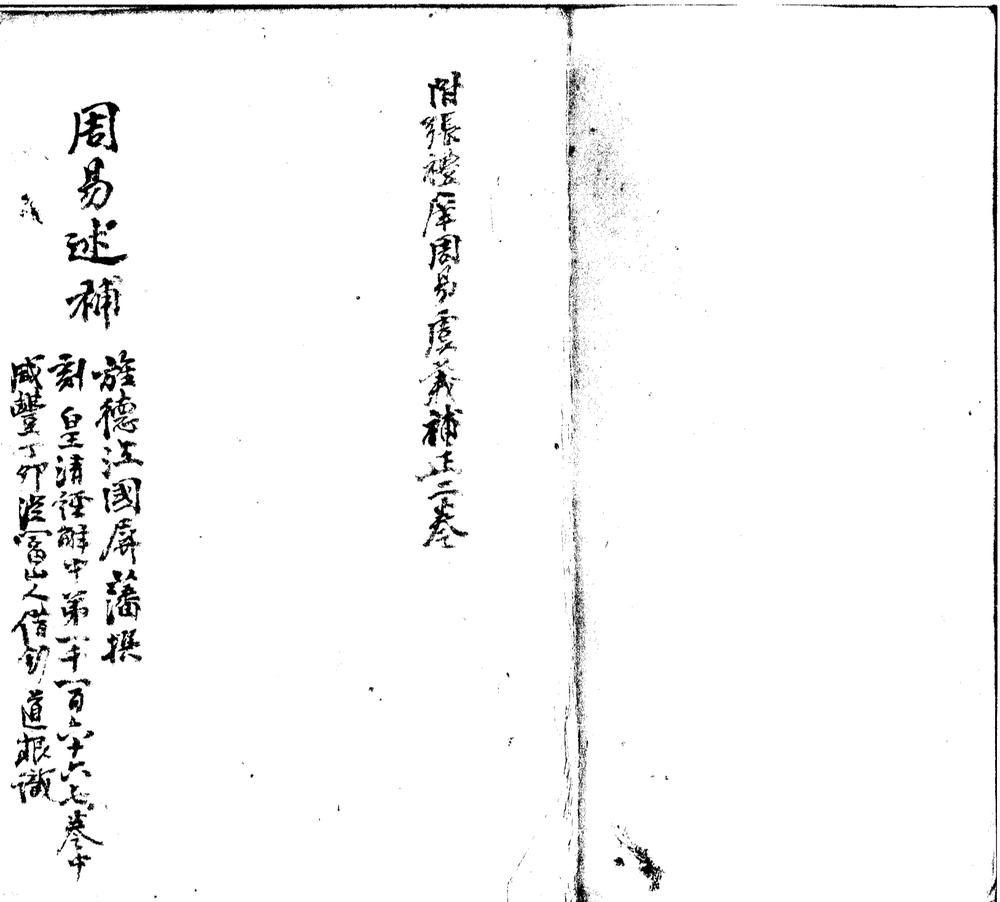 附張禮庠周易虞義補正二卷
周易述補
旌德江國屏藩撰
刻皇清經解中第一千一百六十六七卷中
咸豐丁卯山人借鈔道根識